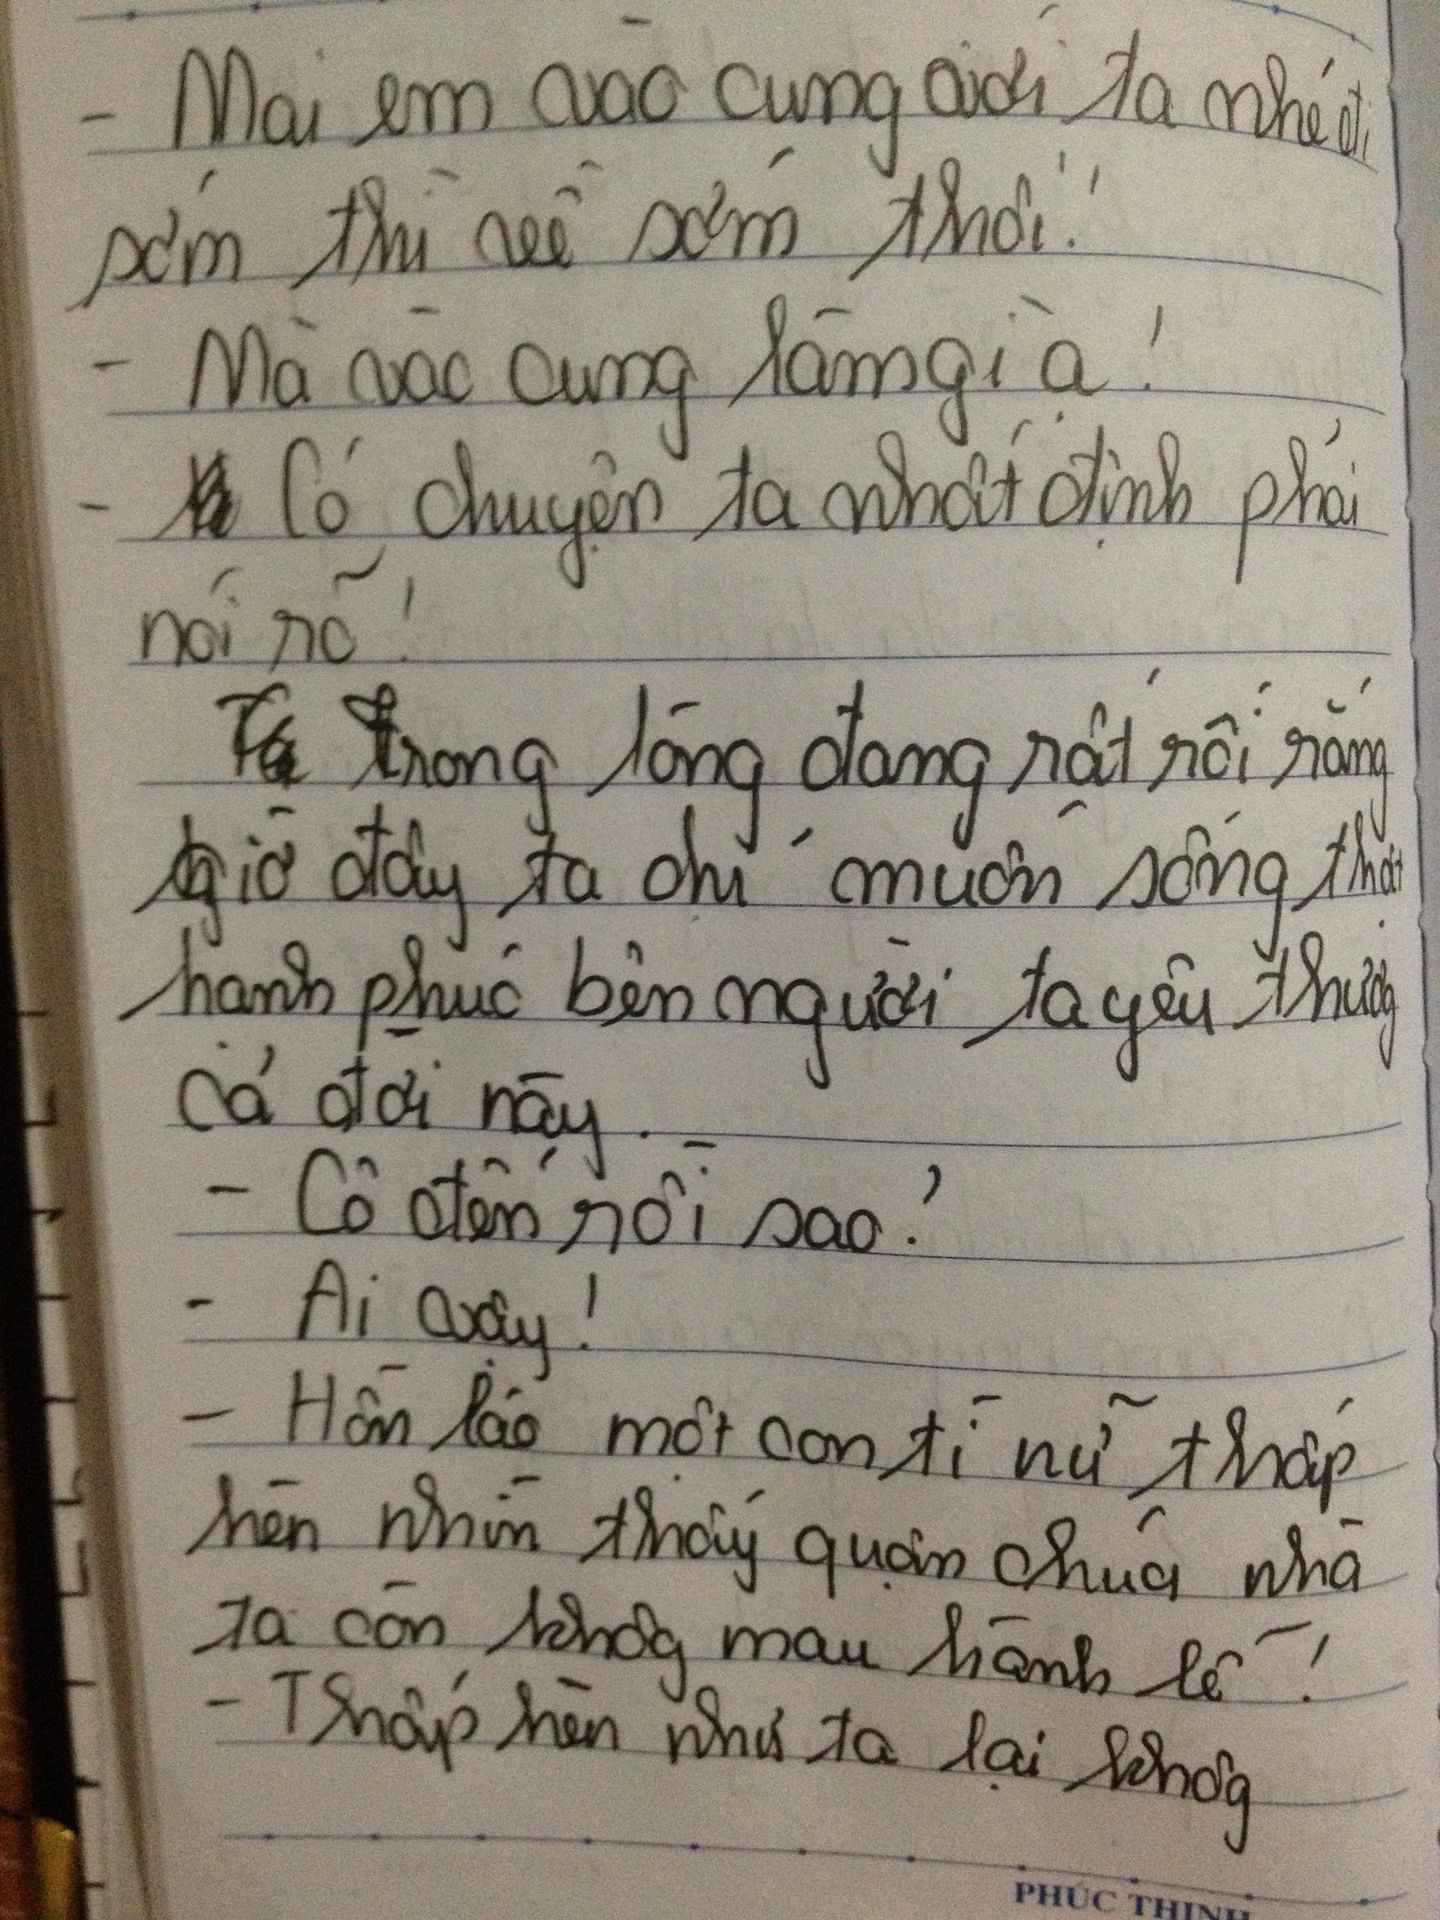 - Mai em vào cung với ta nhé đi
sớm thì về sớm thôi!
- Mà vào cung làm gì ạ!
- Có chuyện ta nhất định phải
nói rõ!
Trong lòng đang rất rối rắng
giờ đây ta chỉ muốn sống thật
hạnh phúc bên người ta yêu thươg
cả đời này.
- Cô đến rồi sao!
- Ai vậy!
- Hỗn láo một con tì nữ thấp
hèn nhìn thấy quận chúa nhà
ta còn khôg mau hành lễ!
- Thấp hèn như ta lại khôg
PHÚC THỊNH